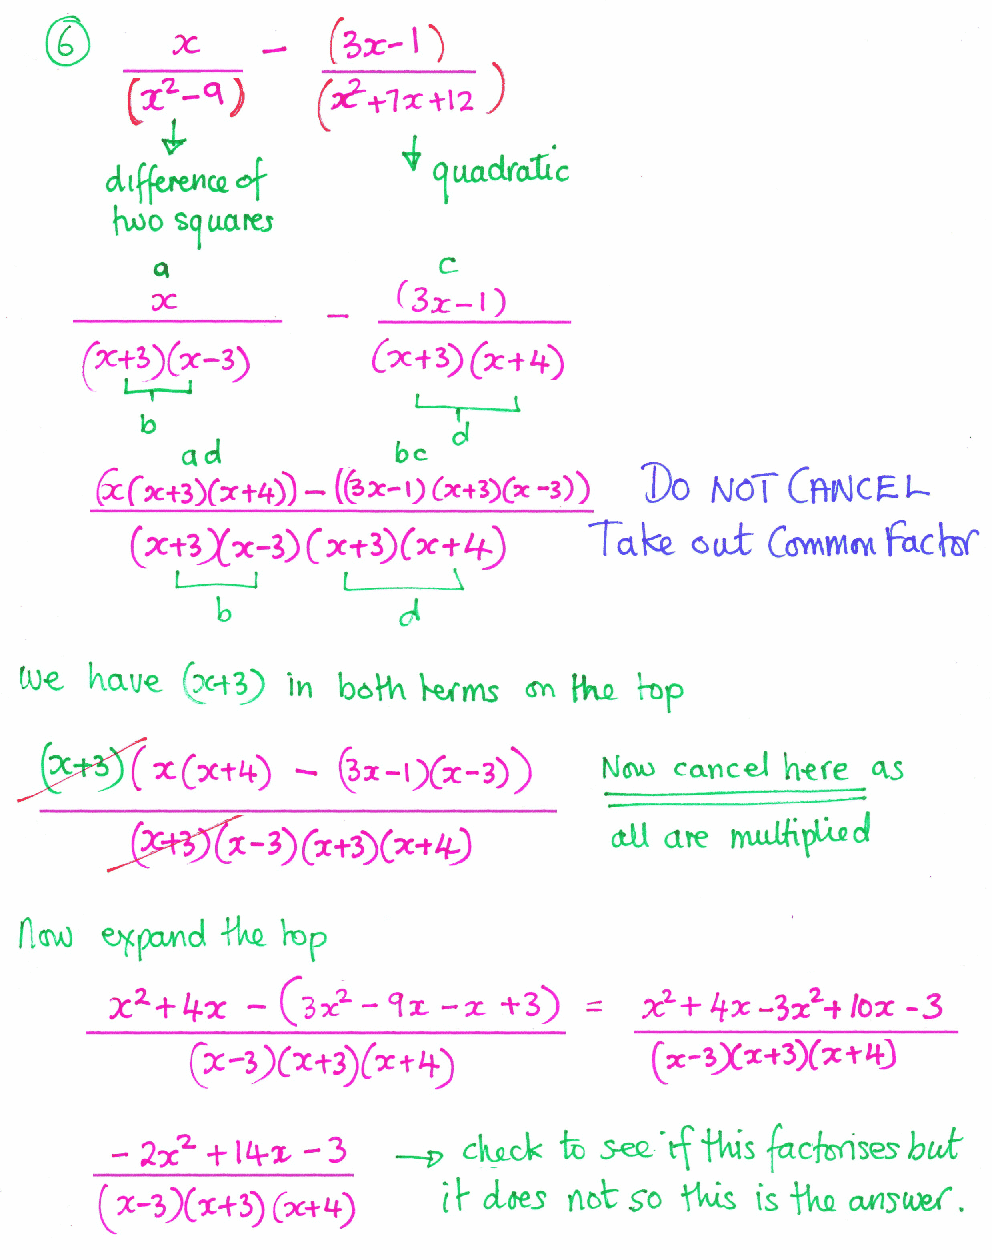 6 x/(x²-9) - (3x-1)/(x²+7x+12)
difference of two squares
quadratic
a c
x/((x+3)(x-3)) - (3x-1)/((x+3)(x+4))
b d
ad bc
(x(x+3)(x+4)) - ((3x-1)(x+3)(x-3)) DO NOT CANCEL
(x+3)(x-3)(x+3)(x+4) Take out Common Factor
b d
we have (x+3) in both terms on the top
(x+3)(x(x+4) - (3x-1)(x-3)) Now cancel here as
(x+3)(x-3)(x+3)(x+4) all are multiplied
Now expand the top
x²+4x - (3x²-9x-x+3) = x²+4x-3x²+10x-3
(x-3)(x+3)(x+4) (x-3)(x+3)(x+4)
-2x²+14x-3 → check to see if this factorises but
(x-3)(x+3)(x+4) it does not so this is the answer.